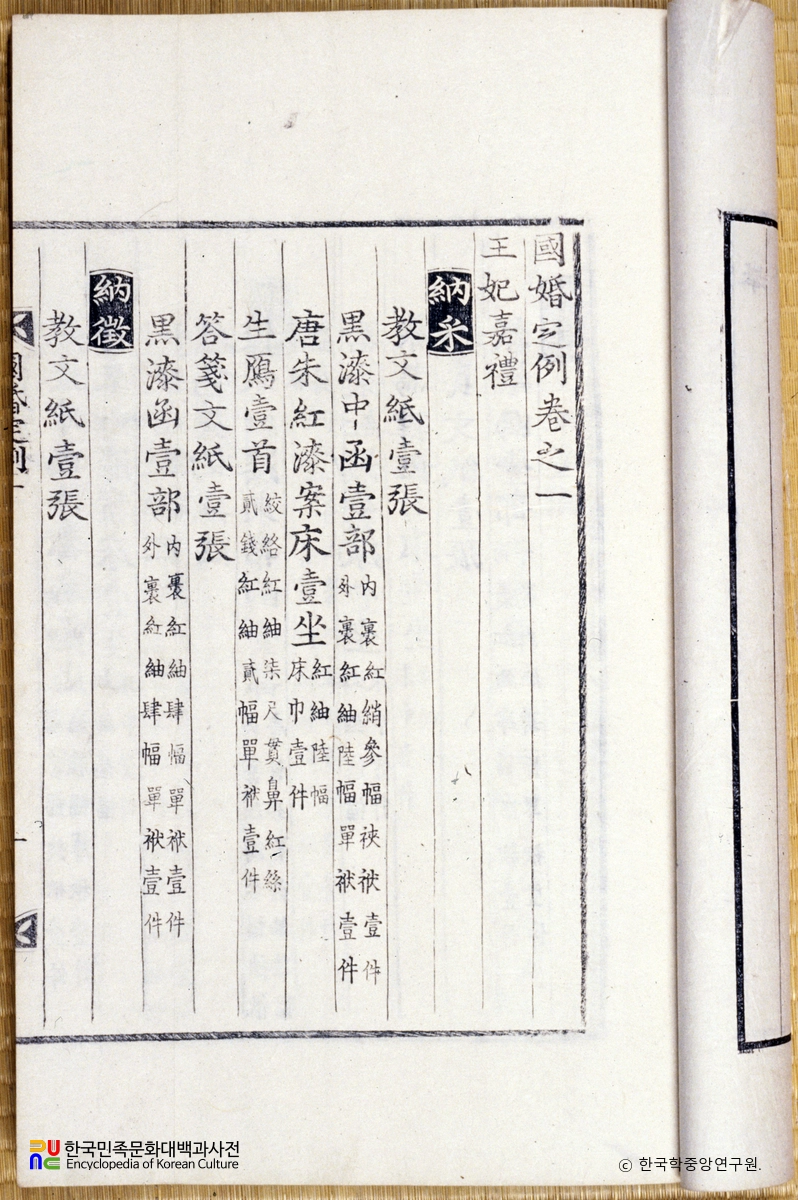 國婚定例卷之一
王妃嘉禮
納采
教文紙壹張
黑漆中函壹部 內裹紅綃參幅裌袱壹件 外裹紅紬陸幅單袱壹件
唐朱紅漆案床壹坐 紅紬陸幅 床巾壹件
生鴈壹首 絞絡紅紬柒尺貫鼻紅絲 貳錢紅紬貳幅單袱壹件
答箋文紙壹張
黑漆函壹部 內裹紅紬肆幅單袱壹件 外裹紅紬肆幅單袱壹件
納徵
教文紙壹張
國婚定例一
一
한국민족문화대백과사전
Encyclopedia of Korean Culture
© 한국학중앙연구원.